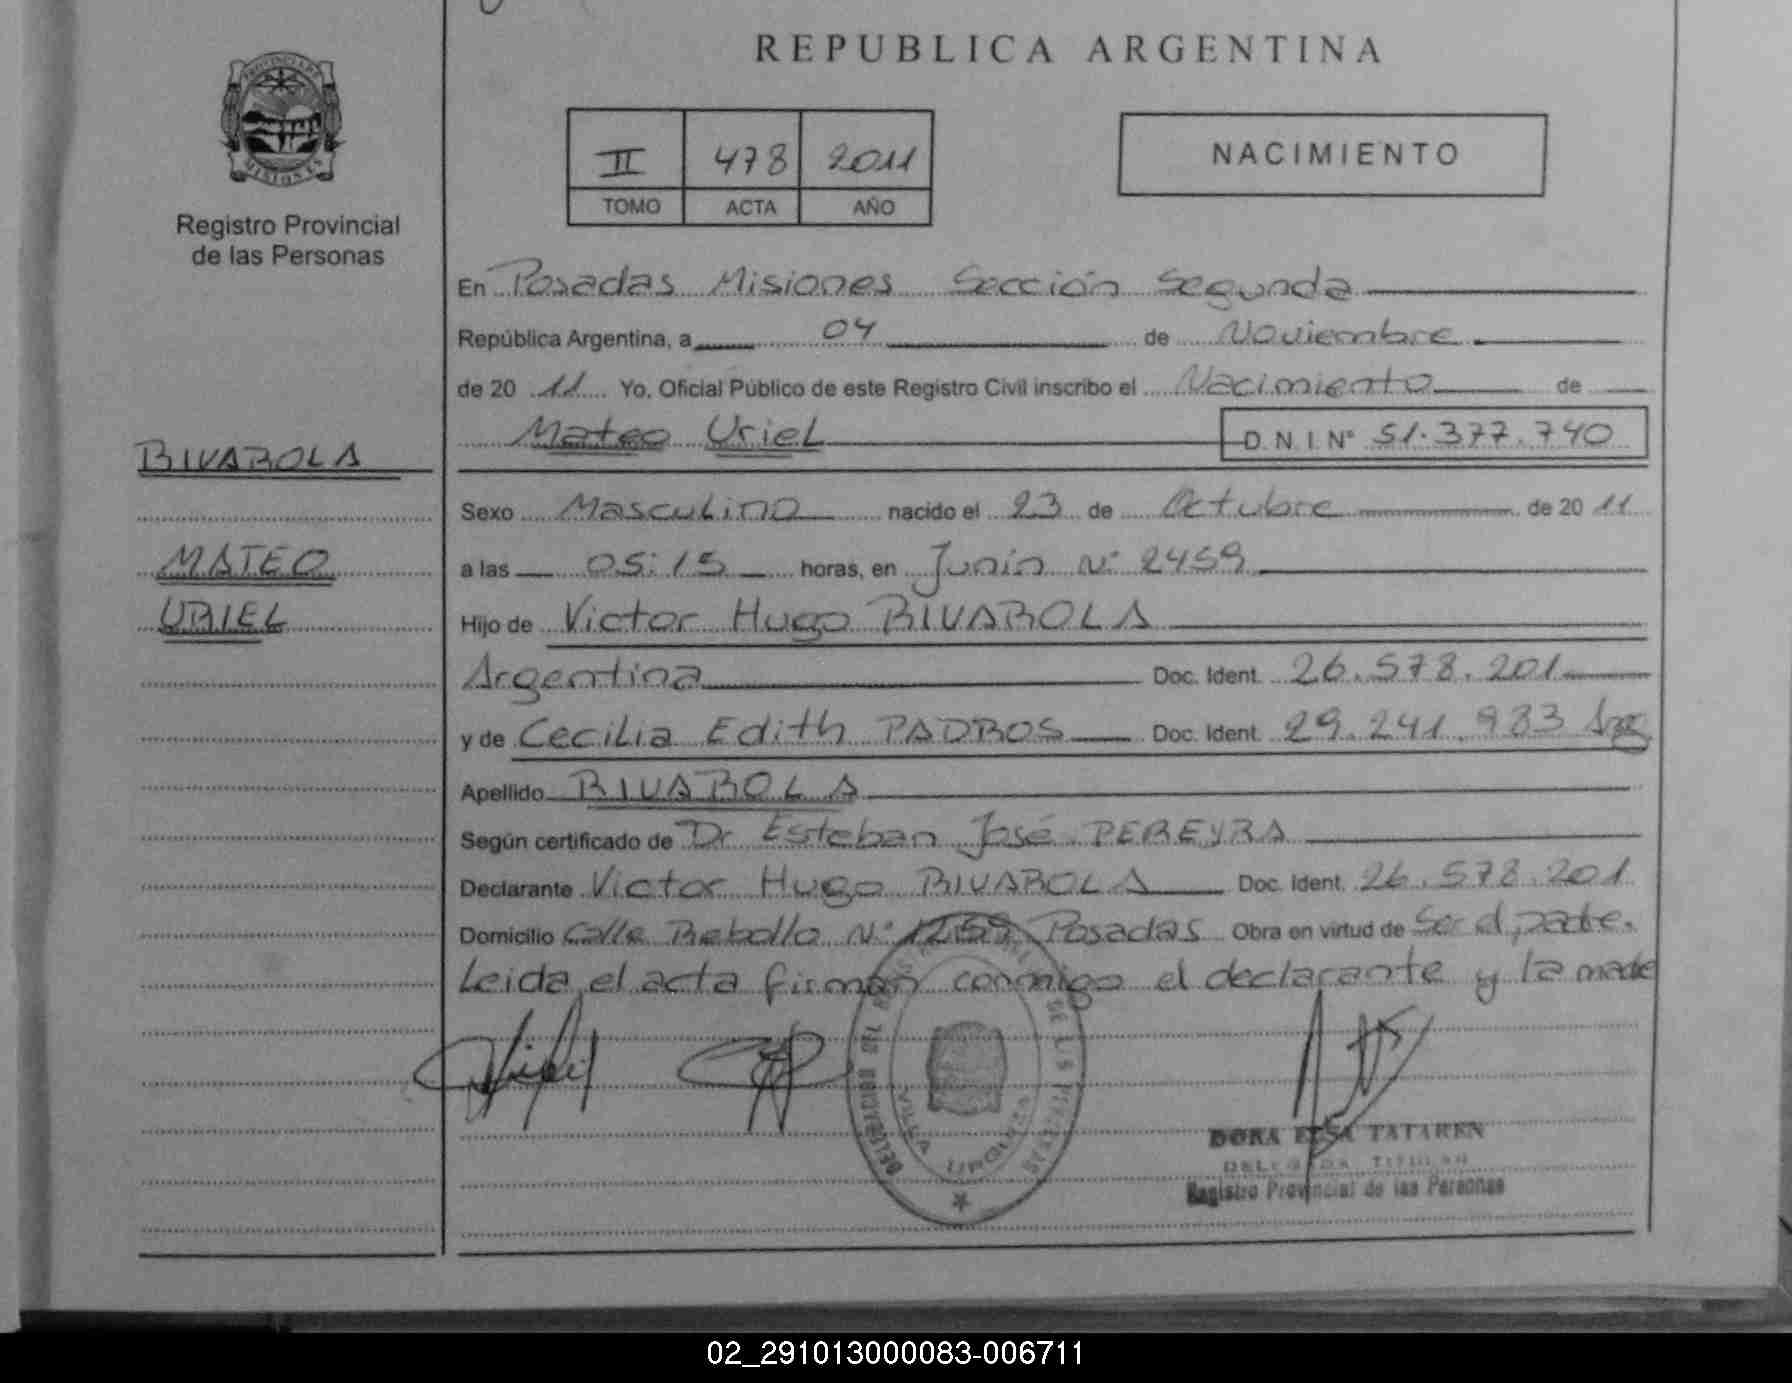 REPUBLICA ARGENTINA
PROVINCIA DE
MISIONES
Registro Provincial
de las Personas
II 478 2011
TOMO ACTA AÑO
NACIMIENTO
En Posadas Misiones Sección Segunda
República Argentina, a 04 de Noviembre
de 20 11 Yo, Oficial Público de este Registro Civil inscribo el Nacimiento de
Mateo Uriel D. N. I. Nº 51.377.740
RIVAROLA
MATEO
URIEL
Sexo Masculino nacido el 23 de Octubre de 20 11
a las 05:15 horas, en Junín Nº 2459
Hijo de Victor Hugo RIVAROLA
Argentina Doc. Ident. 26.578.201
y de Cecilia Edith PADROS Doc. Ident. 29.241.983 Arg
Apellido RIVAROLA
Según certificado de Dr Esteban José PEREYRA
Declarante Victor Hugo RIVAROLA Doc. Ident. 26.578.201
Domicilio Calle Rebollo Nº 1259 Posadas Obra en virtud de Ser el padre.
Leida el acta firman conmigo el declarante y la madre
VILLA URQUIZA
DORA ELSA TATAREN
DELEGADA TITULAR
Registro Provincial de las Personas
02_291013000083-006711